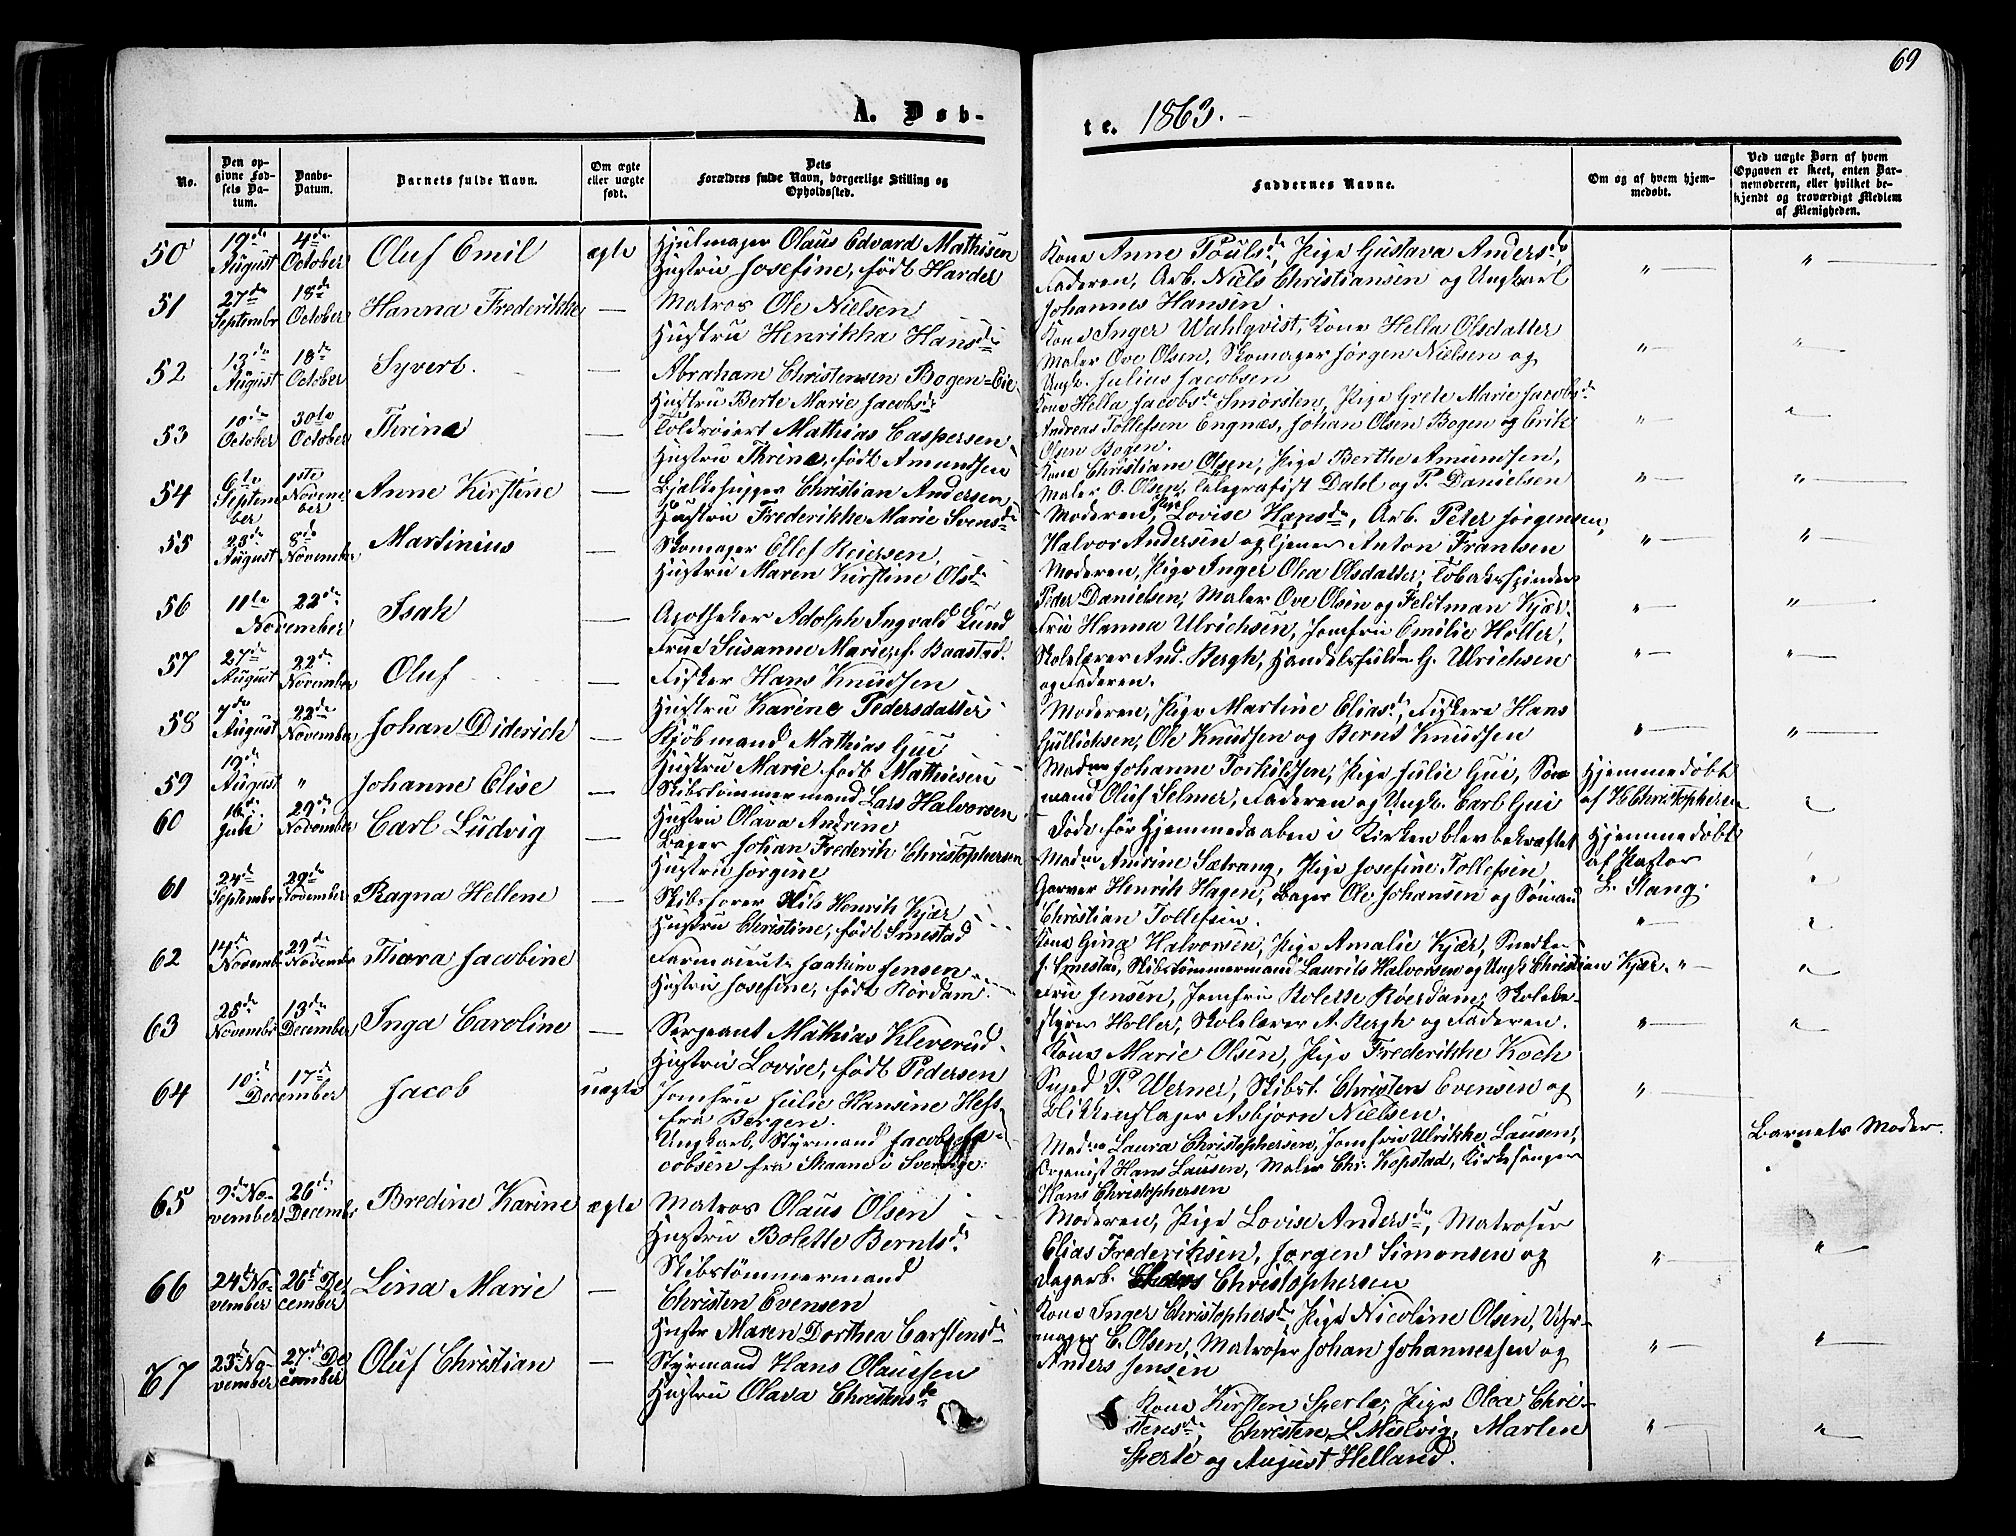 69
A. Døb-
te. 1863.
No.
Den op-
givne Fød-
sels Da-
tum.
Daabs-
Datum.
Barnets fulde Navn.
Om ægte
eller uægte
født.
Dets
Forældres fulde Navn, borgerlige Stilling og
Opholdssted.
Faddernes Navne.
Om og af hvem hjem-
medøbt.
Ved uægte Børn af hvem
Opgaven er skeet, enten Bar-
nemoderen, eller hvilket be-
kjendt og troværdigt Medlem
af Menigheden.
50 19de August 4de October Oluf Emil ægte
Hjulmager Olaus Edvard Mathisen
Hustru Josefine, født Harder
Kone Anne Poulsd., Pige Gustava Andersd.
Faderen, Arb. Niels Christiansen og Ungkarl
Johannes Hansen.
51 27de Septembr 18de October Hanna Frederikke —
Matros Ole Nielsen
Hustru Henrikka Hansd.
Kone Inger Wahlqvist, Kone Hella Olsdatter
Maler Ove Olsen, Skomager Jørgen Nielsen og
Ungk. Julius Jacobsen
52 13de August 18de October Syvert. —
Abraham Christensen Bogen=Eie
Hustru Berte Marie Jacobsd.
Kone Hella Jacobsd. Smørsten, Pige Grete Marie Jacobsd.
Andreas Tollefsen Engnæs, Johan Olsen Bogen og Erik
Olsen Bogen.
53 10de October 30te October Thrine —
Toldroiert Mathias Caspersen
Hustru Thrine, født Amundsen
Kone Christiane Olsen, Pige Berthe Amundsen,
Maler O. Olsen, Telegrafist Dahl og P. Danielsen
54 6te Septem-ber 1ste Novem-ber Anne Kirstine —
Bjelkehugger Christian Andersen
Hustru Frederikke Marie Svensd.
Moderen, Pige Lovise Hansd., Arb. Peter Jørgensen,
Halvor Andersen og tjener Anton Frantsen
55 23de August 8de November Martinius —
Skomager Ellef Reiersen
Hustru Maren Kirstine Olsd.
Moderen, Pige Inger Olea Olsdatter, Tobaksspinder
Peder Danielsen, Maler Ove Olsen og Feldtman Kjær.
56 11te 22de November Isak —
Apotheker Adolph Ingvald Lund
Frue Susanne Marie, f. Baastad.
Fru Hanna Ulrichsen, Jomfru Emilie Holler,
Skolelærer And. Bergh, Handelsfuldm. G. Ulrichsen
og Faderen.
57 27de August 22de November Oluf —
Fisker Hans Knudsen
Hustru Karine Pedersdatter
Moderen, Pige Martine Eliasd., Fiskere Hans
Gullichsen, Ole Knudsen og Bernt Knudsen
58 7de August 22de November Johan Diderich —
Kjøbmand Mathias Gui
Hustru Marie født Mathisen
Madme Johanne Torkildsen, Pige Julie Gui, Søe-
mand Oluf Selmer, Faderen og Ungk. Carl Gui
59 19de August " Johanne Elise —
Skibstømmermand Lars Halvorsen
Hustru Olava Andrine
Døde før Hjemmedaaben i Kirken blev bekræftet
Hjemmedøbt
af H Christophersen
60 16de Juli 29de November Carl Ludvig —
Bager Johan Frederik Christophersen
Hustru Jørgine
Madme Amrine Sætrang, Pige Josefine Tollefsen
Garver Henrik Hagen, Bager Ole Johansen og Sømand
Christian Tollefsen.
Hjemmedøbt
af Pastor
L. Stang.
61 24de Septembr 29de November Ragna Hellene
Skibsfører Nils Henrik Kjær
Hustru Christine, født Smestad
Kone Gina Halvorsen, Pige Amalie Kjær, Snedker
J. Smestad, Skibstømmermand Laurits Halvorsen og Ungk. Christian Kjær.
62 14de Novembr 29de Novembr Thora Jacobine
Farmaceut Joakim Jensen
Hustru Josefine, født Rørdam.
Fru Jensen, Jomfru Rolette Rørdam, Skolebe-
styrer Holler, Skolelærer A. Bergh og Faderen.
63 25de Novembr 13de December Inga Caroline —
Sergeant Mathias Kleverud
Hustru Lovise, født Pedersen
Kone Marie Olsen, Pige Frederikke Koch
Smed P. Werner, Skibst. Christen Evensen og
Blikkenslager Asbjørn Nielsen.
64 10de 17de December Jacob uægte
Jomfru Julie Hansine Hess
fra Bergen.
Ungkarl, Styrmand Jacob Ja-
cobsen fra Skaane i Sverrige.
Madme Laura Christophersen, Jomfru Ulrikke Lausen,
Organist Hans Lausen, Maler Chr. Kopstad, Kirkesanger
Hans Christophersen
Barnets Moder.
65 9de No-vember 26de Decembr Bredine Karine ægte
Matros Olaus Olsen
Hustru Bolette Berntsd.
Moderen, Pige Lovise Andersd., Matroser
Elias Frederiksen, Jørgen Simonsen og
Dagarb. Christophersen
66 24de No-vember 26de De-cember Lina Marie —
Skibstømmermand
Christen Evensen
Hustr. Maren Dorthea Carstensd.
Kone Inger Christophersd., Pige Nicoline Olsen, Uhr-
mager C. Olsen, Matroser Johan Johannessen og
Anders Jensen
67 23de No-vember 27de De-cember Oluf Christian —
Styrmand Hans Olaussen
Hustru Olava Christensd.
Kone Kirsten Sperle, Pige Olea Chri-
stensd., Christen L Melvig, Marten
Sperle og August Helland.